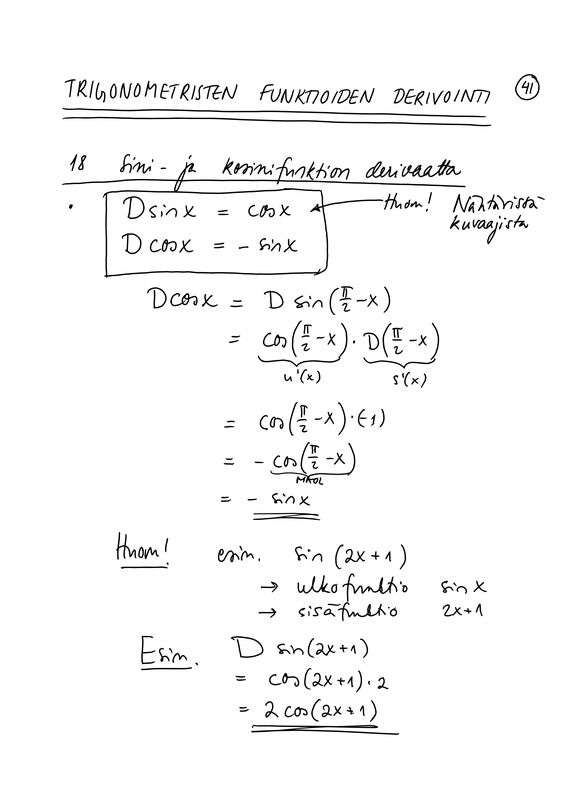 TRIGONOMETRISTEN FUNKTIOIDEN DERIVOINTI 41
18 Sini- ja kosinifunktion derivaatta
• D sin x = cos x ← Huom! Nähtävissä
D cos x = - sin x kuvaajista
D cos x = D sin(π/2 - x)
= cos(π/2 - x) · D(π/2 - x)
u'(x) s'(x)
= cos(π/2 - x) · (-1)
= - cos(π/2 - x)
MAOL
= - sin x
Huom! esim. sin (2x+1)
→ ulkofunktio sin x
→ sisäfunktio 2x+1
Esim. D sin(2x+1)
= cos(2x+1) · 2
= 2 cos(2x+1)